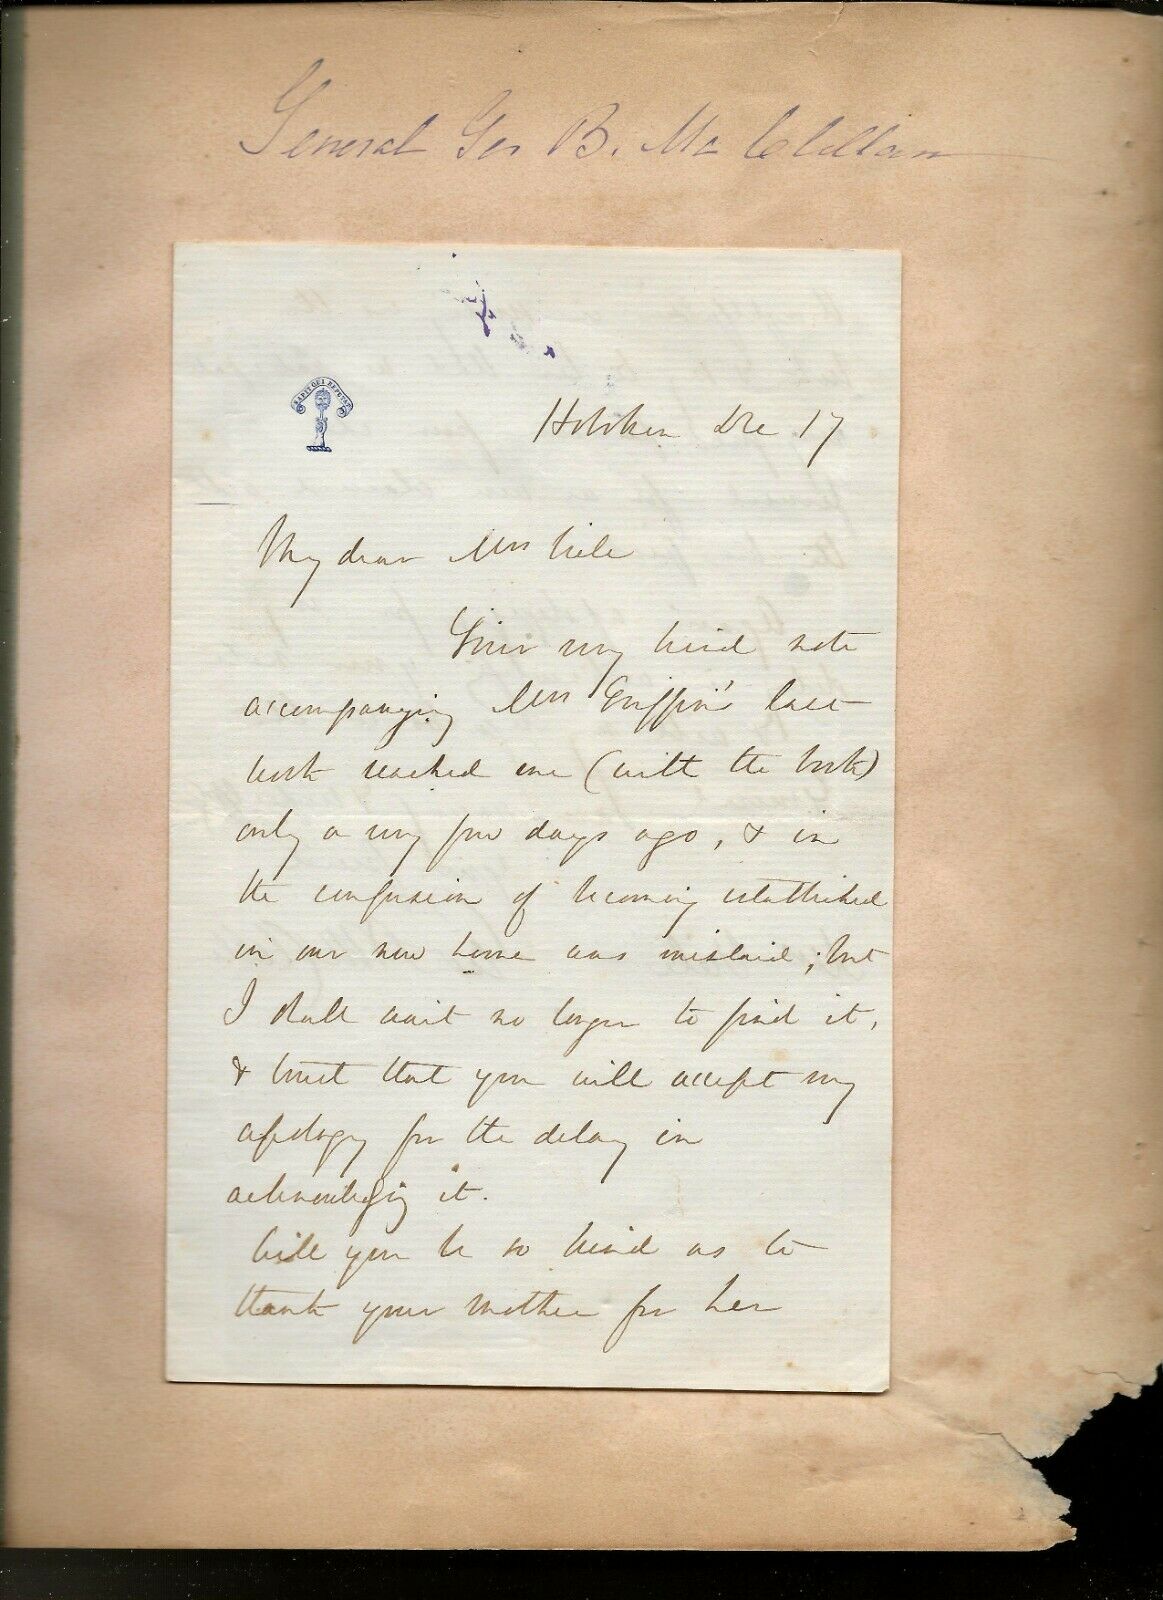 General Geo B. McClellan
SAPIT QUI REPUTAT
Hoboken Dec 17
My dear Mrs Viele
Your very kind note
accompanying Mrs Griffin's last
book reached me (with the book)
only a very few days ago, & in
the confusion of becoming established
in our new home was mislaid; but
I shall wait no longer to find it,
& trust that you will accept my
apology for the delay in
acknowledging it.
Will you be so kind as to
thank your mother for her